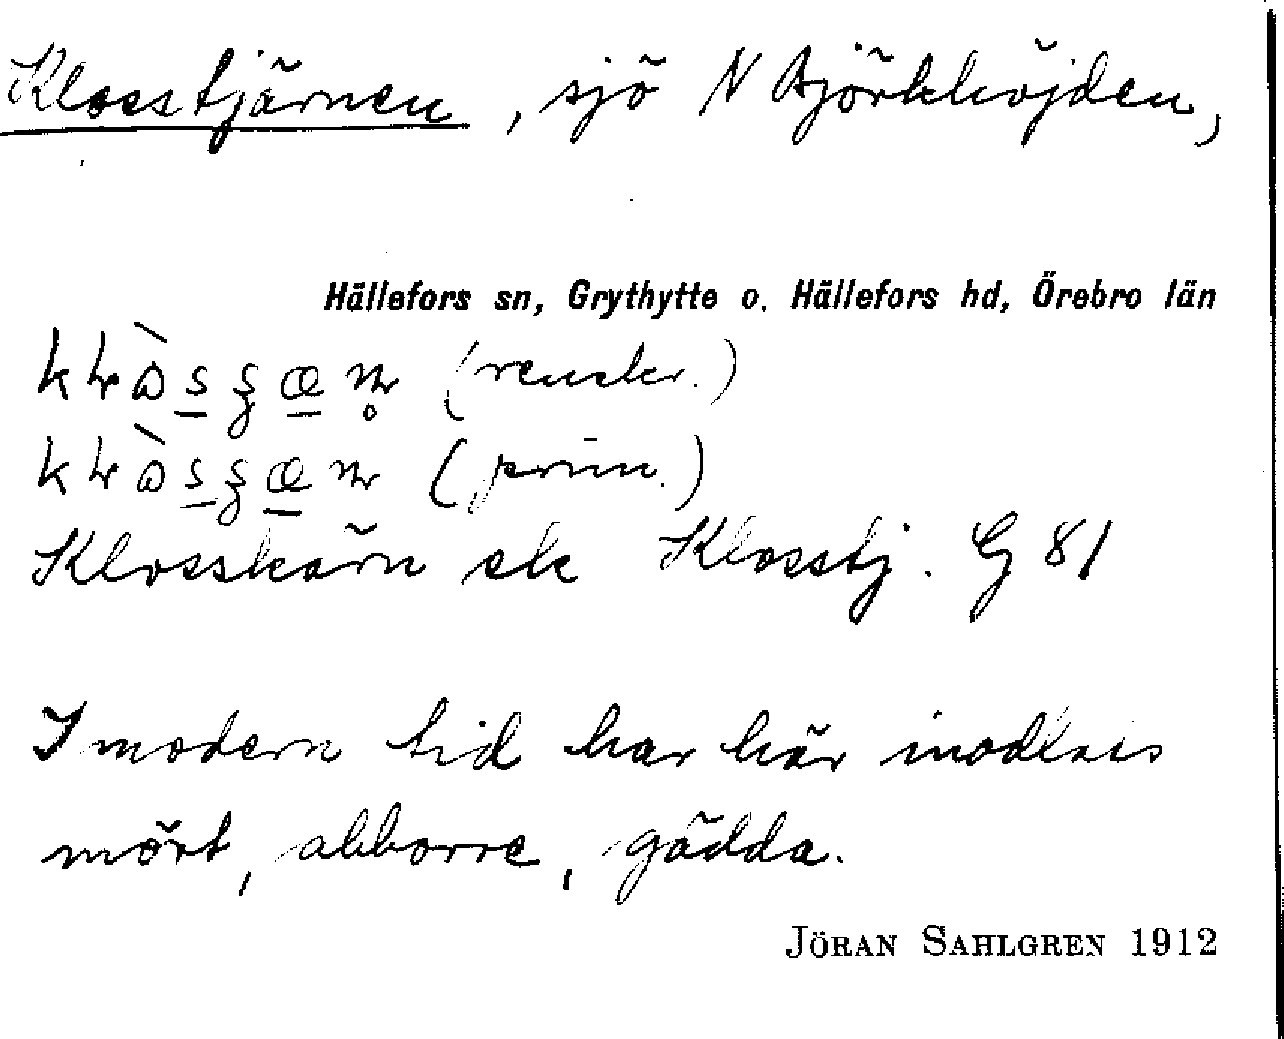 Klosstjärnen, sjö N Björkhöjden,
Hällefors sn, Grythytte o. Hällefors hd, Örebro län
(renskr.)
(prim.)
Klosskärn ek Klosstj. G 81
I modern tid har här inodlats
mört, abborre, gädda.
JÖRAN SAHLGREN 1912